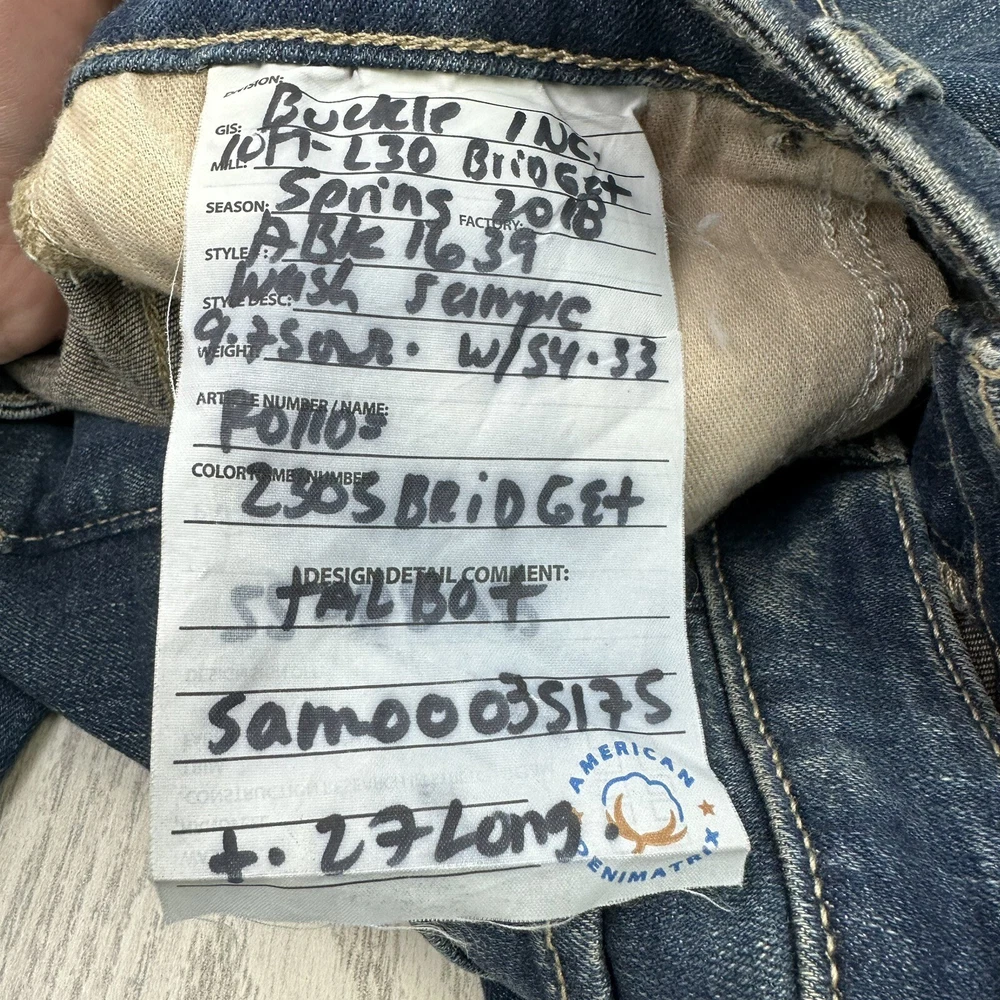 DIVISION:
Buckle INC.
GIS:
MILL: L30 BRiDGEt
SEASON: Spring 2018
FACTORY:
STYLE#: ABK1639
STYLE DESC: Wash Sample
WEIGHT: W/54.33
ARTICLE NUMBER / NAME:
COLOR NAME/NUMBER:
BRiDGEt
DESIGN DETAIL COMMENT:
tALBOt
Sam00035175
t. 27 Long.
AMERICAN
DENIMATRIX